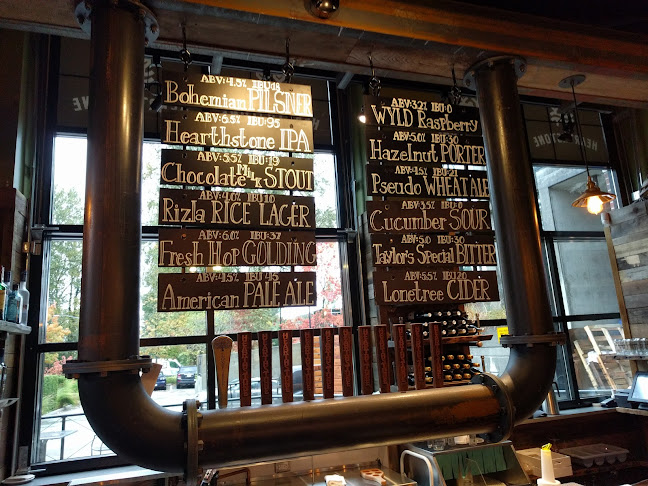 ABV:4.8% IBU:18
Bohemian PILSNER
ABV:5.5% IBU:95
Hearthstone IPA
ABV:5.5% IBU:19
Chocolate Milk STOUT
ABV:4.0% IBU:10
Rizla RICE LAGER
ABV:6.0% IBU:37
Fresh Hop GOLDING
ABV:4.5% IBU:45
American PALE ALE
ABV:3.2% IBU:0
WYLD Raspberry
ABV:5.0% IBU:30
Hazelnut PORTER
IBU:21
Pseudo WHEAT ALE
IBU:0
Cucumber SOUR
ABV:5.0 IBU:30
Taylor's Special BITTER
ABV:5.5% IBU:20
Lonetree CIDER